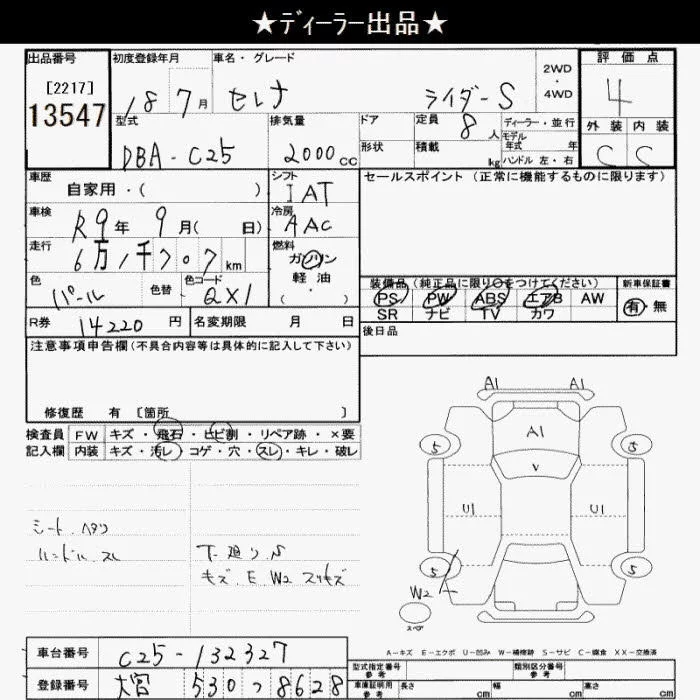 ★ディーラー出品★
出品番号 [2217] 13547
初度登録年月 18 7月
車名・グレード セレナ ライダーS
2WD・4WD
評価点 4
外装 C 内装 C
型式 DBA-C25
排気量 2000cc
ドア 形状
定員 8人
積載 kg
ディーラー・並行
モデル年式 年
ハンドル 左・右
車歴 自家用・( )
シフト IAT
セールスポイント(正常に機能するものに限ります)
車検 R9年9月( 日)
冷房 AAC
走行 6万1千707km
燃料 ガソリン 軽油 ・( )
色 パール 色替
色コード QX1
装備品(純正品に限り○をつけてください)
PS PW ABS エアB AW
SR ナビ TV カワ
新車保証書 有・無
R券 14220円
名変期限 月 日
後日品
注意事項申告欄(不具合内容等は具体的に記入して下さい)
修復歴 有 〔箇所 〕
検査員記入欄
FW キズ・飛石・ヒビ割・リペア跡・×要
内装 キズ・汚レ・コゲ・穴・スレ・キレ・破レ
シート ヘタリ
ハンドル スレ
下廻りS
キズ E W2 スリキズ
A1 A1
A1
5 5
V
U1 U1
5 5
W2
スペア
A-キズ E-エクボ U-凹み W-補修跡 S-サビ C-腐食 XX-交換済
車台番号 C25-132327
登録番号 大宮 530 つ 8628
型式指定番号 参考
類別区分番号 参考
車庫証明用 参考 長さ cm 幅 cm 高さ cm